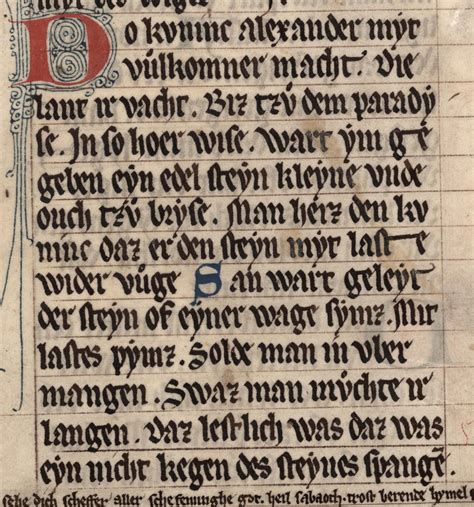 myr der
Do kvninc alexander myt
vůlkomner macht. Die
lant ir vacht. Biz tzů dem parady
se. In so hoer wise. Wart ẏm gē
geben eyn edel steyn kleyne vnde
ouch tzů bryse. Man herz den kv
ninc daz er den steyn myt last e
wider vůge San wart geleyt
der steyn of eyner wage symz. Mit
lastes pymz. Solde man in vber
mangen. Swaz man můchte ir
langen. Daz lestlich was daz was
eyn nicht kegen des steynes spange.
sehe dich scheffer aller scheffenunghe got. heil sabaoth. trost berende hymel